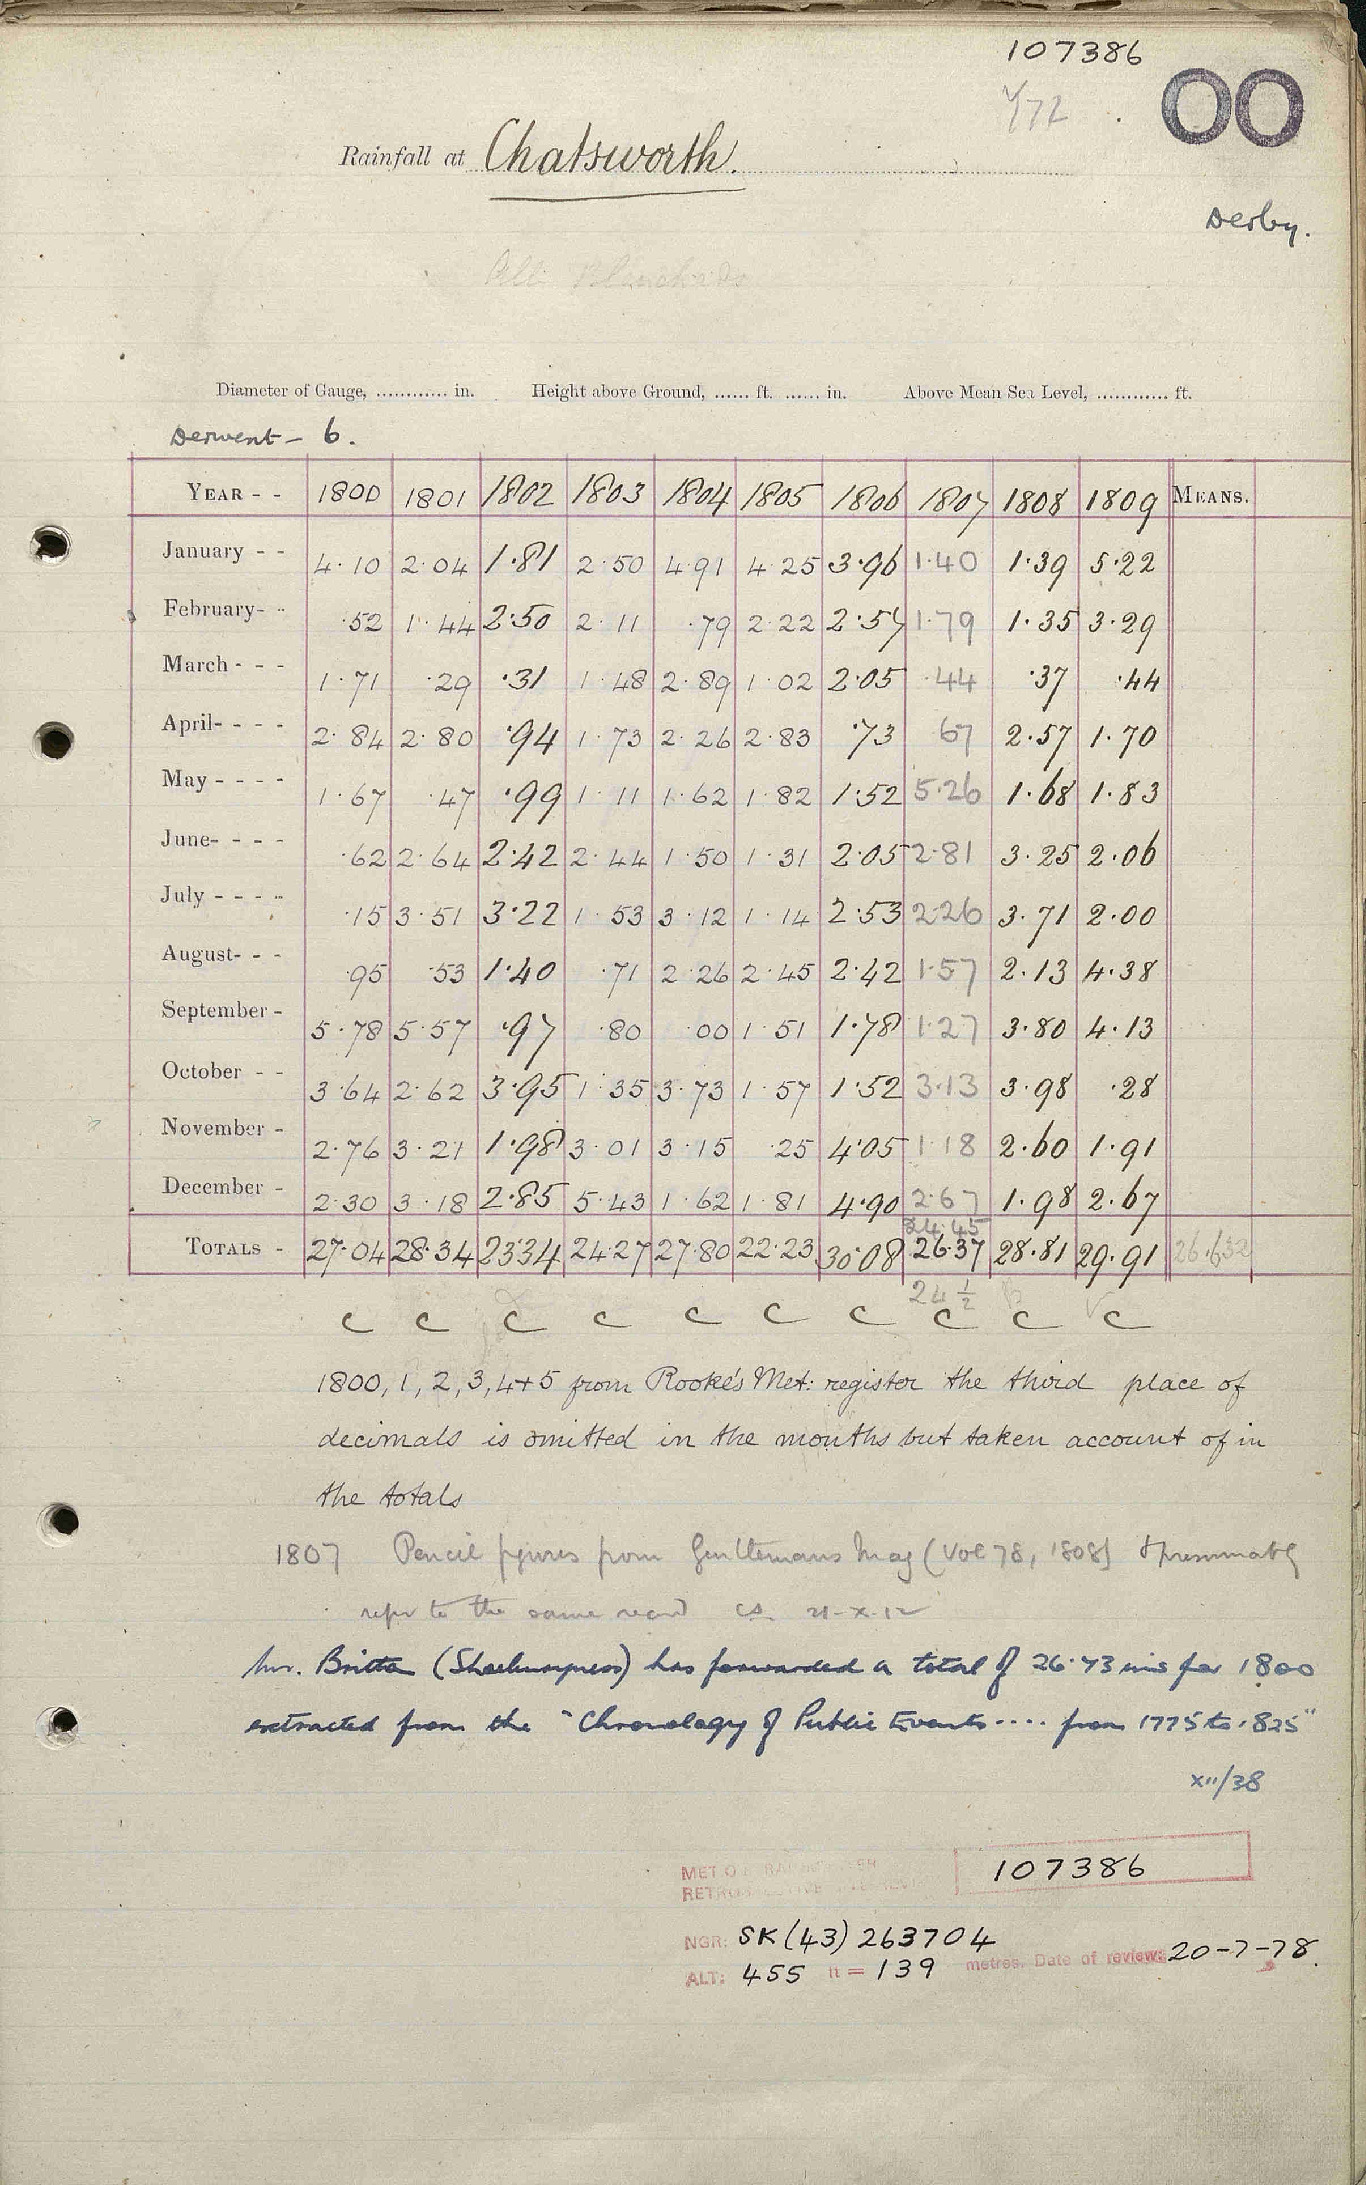 107386
00
Rainfall at Chatsworth.
Derby.
Diameter of Gauge, ............ in. Height above Ground, ...... ft. ...... in. Above Mean Sea Level, ............ ft.
Derwent - 6.
YEAR - - 1800 1801 1802 1803 1804 1805 1806 1807 1808 1809 MEANS.
January - - 4.10 2.04 1.81 2.50 4.91 4.25 3.96 1.40 1.39 5.22
February- - .52 1.44 2.50 2.11 .79 2.22 2.57 1.79 1.35 3.29
March - - - 1.71 .29 .31 1.48 2.89 1.02 2.05 .44 .37 .44
April- - - - 2.84 2.80 .94 1.73 2.26 2.83 .73 67 2.57 1.70
May - - - - 1.67 .47 .99 1.11 1.62 1.82 1.52 5.26 1.68 1.83
June- - - - .62 2.64 2.42 2.44 1.50 1.31 2.05 2.81 3.25 2.06
July - - - - .15 3.51 3.22 1.53 3.12 1.14 2.53 2.26 3.71 2.00
August- - - .95 .53 1.40 .71 2.26 2.45 2.42 1.57 2.13 4.38
September - 5.78 5.57 .97 .80 .00 1.51 1.78 1.27 3.80 4.13
October - - 3.64 2.62 3.95 1.35 3.73 1.57 1.52 3.13 3.98 .28
November - 2.76 3.21 1.98 3.01 3.15 .25 4.05 1.18 2.60 1.91
December - 2.30 3.18 2.85 5.43 1.62 1.81 4.90 2.67 1.98 2.67
24.45
TOTALS - 27.04 28.34 23.34 24.27 27.80 22.23 30.08 26.37 28.81 29.91 26.632
24 1/2
c c c c c c c c c c
1800, 1, 2, 3, 4+5 from Rooke's Met: register the third place of
decimals is omitted in the months but taken account of in
the totals
1807 Pencil figures from Gentlemans Mag (Vol 78, 1808) & presumably
refer to the same record 21-X-12
Mr. Britton (Shoeburyness) has forwarded a total of 26.73 ins for 1800
extracted from the "Chronology of Public Events .... from 1775 to 1825"
XII/38
MET O
107386
NGR: SK (43) 263704
ALT: 455 ft = 139 metres. Date of review: 20-7-78.